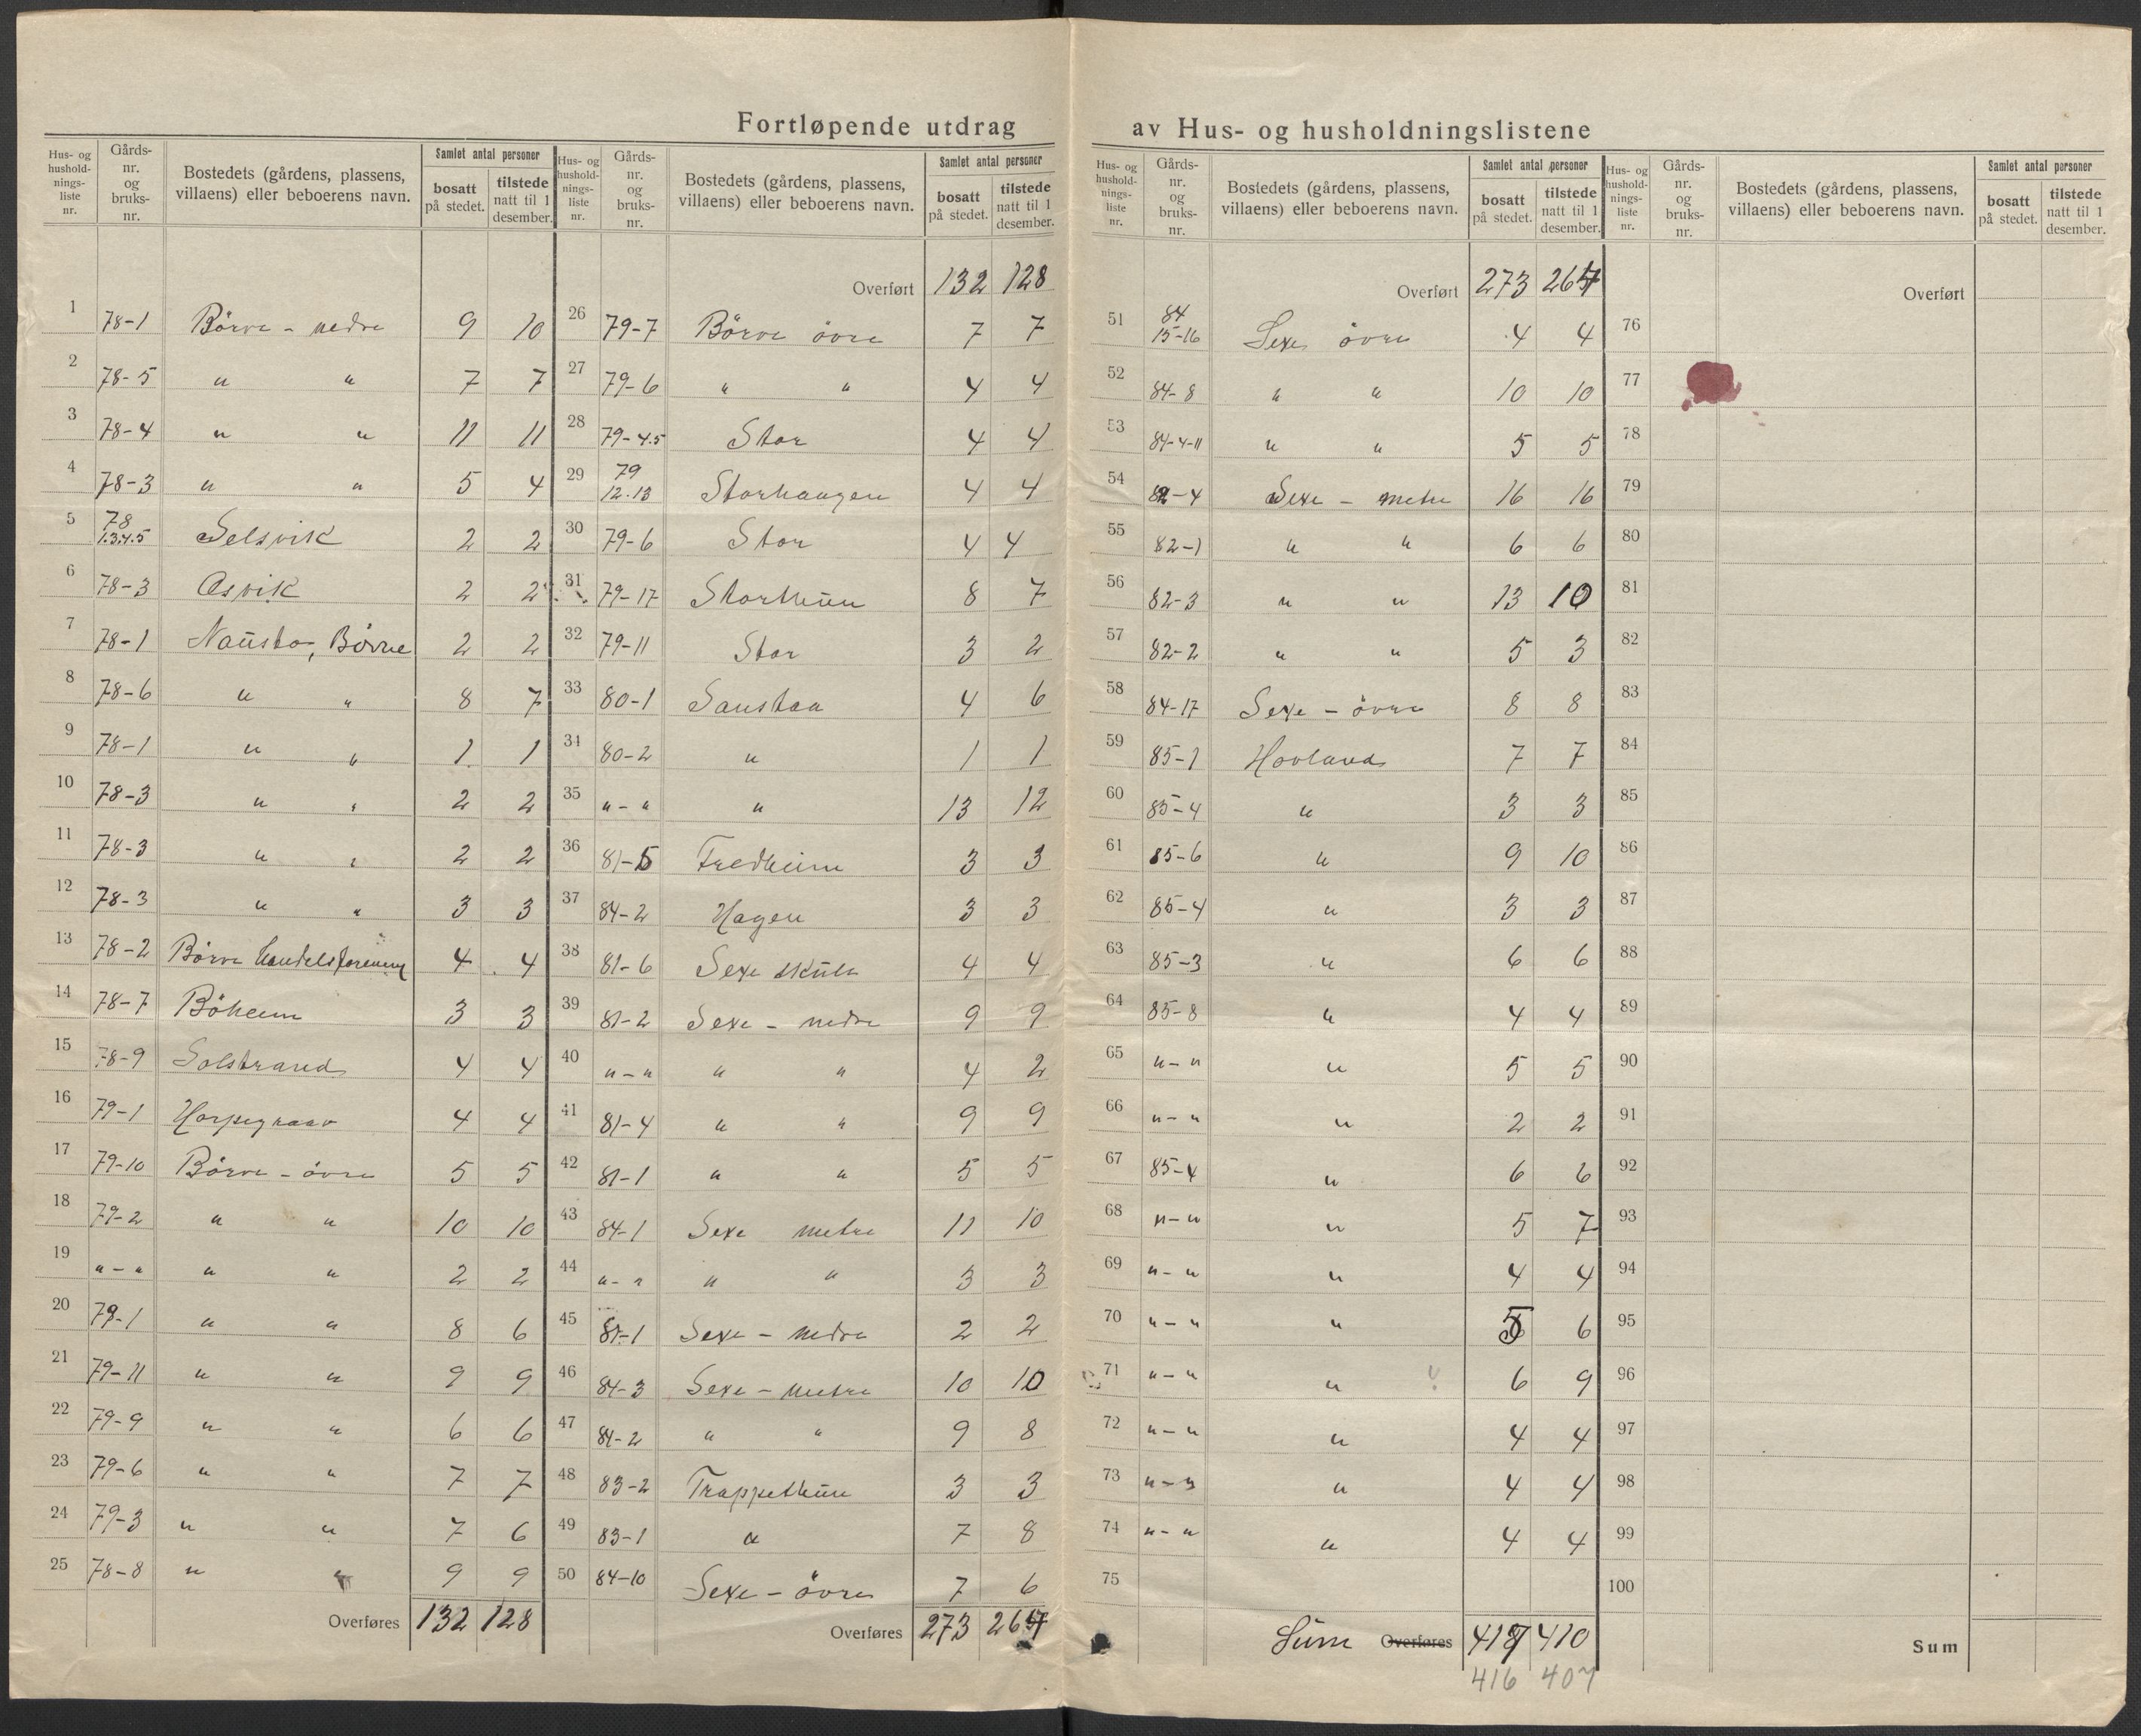 Fortløpende utdrag av Hus- og husholdningslistene
Hus- og hushold-nings-liste nr. | Gårds-nr. og bruks-nr. | Bostedets (gårdens, plassens, villaens) eller beboerens navn. | Samlet antal personer | bosatt på stedet. | tilstede natt til 1 desember.
1 78-1 Börve - nedre 9 10
2 78-5 " " 7 7
3 78-4 " " 11 11
4 78-3 " " 5 4
5 78 1.3.4.5 Selsvik 2 2
6 78-3 Osvik 2 2
7 78-1 Nausta, Börve 2 2
8 78-6 " " 8 7
9 78-1 " " 1 1
10 78-3 " " 2 2
11 78-3 " " 2 2
12 78-3 " " 3 3
13 78-2 Börve Handelsforening 4 4
14 78-7 Böheim 3 3
15 78-9 Solstrand 4 4
16 79-1 4 4
17 79-10 Börve - övre 5 5
18 79-2 " " 10 10
19 "-" " " 2 2
20 79-1 " " 8 6
21 79-11 " " 9 9
22 79-9 " " 6 6
23 79-6 " " 7 7
24 79-3 " " 7 6
25 78-8 " " 9 9
Overføres 132 128
Hus- og hushold-nings-liste nr. | Gårds-nr. og bruks-nr. | Bostedets (gårdens, plassens, villaens) eller beboerens navn. | Samlet antal personer | bosatt på stedet. | tilstede natt til 1 desember.
Overført 132 128
26 79-7 Börve övre 7 7
27 79-6 " " 4 4
28 79-4.5 Stor 4 4
29 79 12.13 Storhaugen 4 4
30 79-6 Stor 4 4
31 79-17 Storthün 8 7
32 79-11 Stor 3 2
33 80-1 Sanstaa 4 6
34 80-2 " 1 1
35 "-" " 13 12
36 81-5 Fredheim 3 3
37 84-2 Hagen 3 3
38 81-6 Sexe skule 4 4
39 81-2 Sexe - nedre 9 9
40 "-" " " 4 2
41 81-4 " " 9 9
42 81-1 " " 5 5
43 84-1 Sexe metre 11 10
44 "-" " " 3 3
45 81-1 Sexe - nedre 2 2
46 84-3 Sexe - metre 10 10
47 84-2 " " 9 8
48 83-2 Trappethün 3 3
49 83-1 " 7 8
50 84-10 Sexe - övre 7 6
Overføres 273 264
Hus- og hushold-nings-liste nr. | Gårds-nr. og bruks-nr. | Bostedets (gårdens, plassens, villaens) eller beboerens navn. | Samlet antal personer | bosatt på stedet. | tilstede natt til 1 desember.
Overført 273 264
51 84 15-16 Sexe övre 4 4
52 84-8 " " 10 10
53 84-4-11 " " 5 5
54 82-4 Sexe - metre 16 16
55 82-1 " " 6 6
56 82-3 " " 13 10
57 82-2 " " 5 3
58 84-17 Sexe - övre 8 8
59 85-1 Hovland 7 7
60 85-4 " 3 3
61 85-6 " 9 10
62 85-4 " 3 3
63 85-3 " 6 6
64 85-8 " 4 4
65 "-" " 5 5
66 "-" " 2 2
67 85-4 " 6 6
68 "-" " 5 7
69 "-" " 4 4
70 "-" " 5 6
71 "-" " 6 9
72 "-" " 4 4
73 "-" " 4 4
74 "-" " 4 4
75
Süm Overføres 417 410
416 407
Hus- og hushold-nings-liste nr. | Gårds-nr. og bruks-nr. | Bostedets (gårdens, plassens, villaens) eller beboerens navn. | Samlet antal personer | bosatt på stedet. | tilstede natt til 1 desember.
Overført
76
77
78
79
80
81
82
83
84
85
86
87
88
89
90
91
92
93
94
95
96
97
98
99
100
Sum